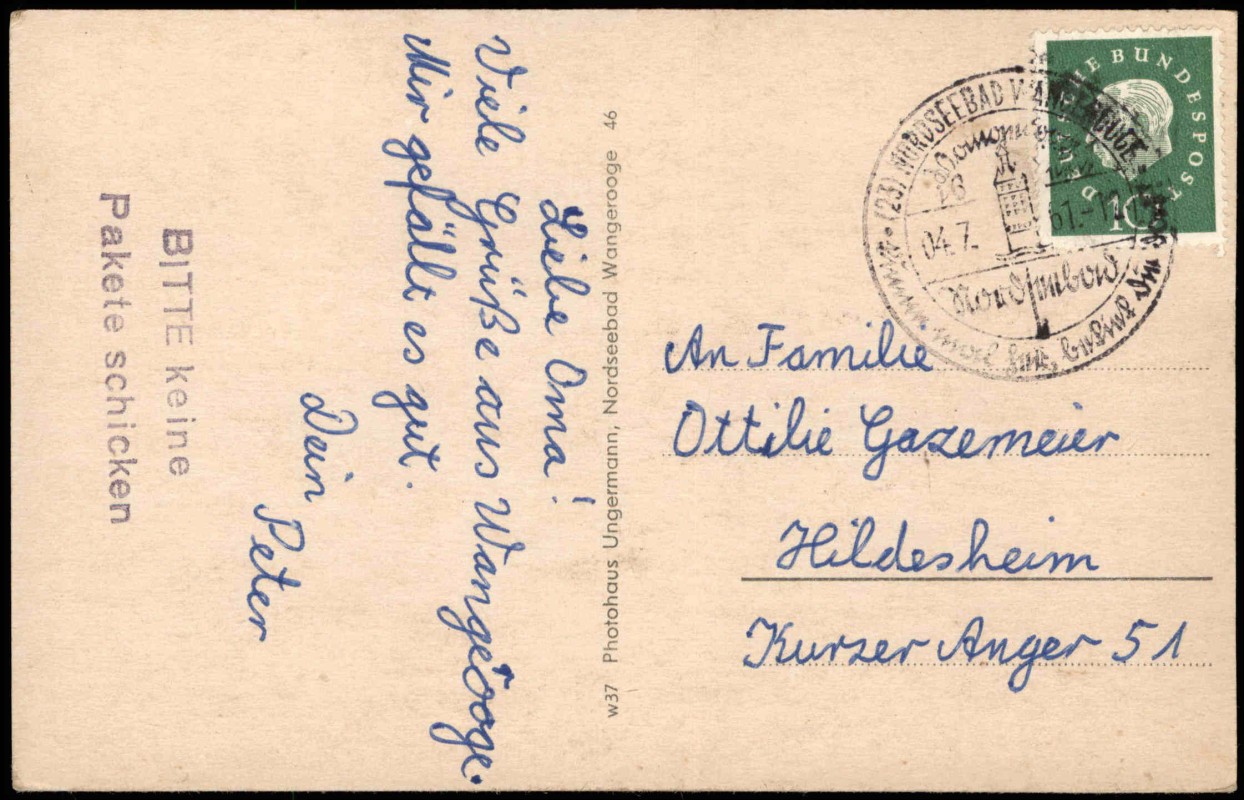 Liebe Oma!
Viele Grüße aus Wangeooge.
Mir gefällt es gut.
Dein
Peter
BITTE keine
Pakete schicken
w37 Photohaus Ungermann, Nordseebad Wangerooge 46
BUNDESPOST
10
(23) NORDSEEBAD WANGEROOGE
04.7.
61.-12
Nordseebad
An Familie
Ottilie Gazemeier
Hildesheim
Kurzer Anger 51